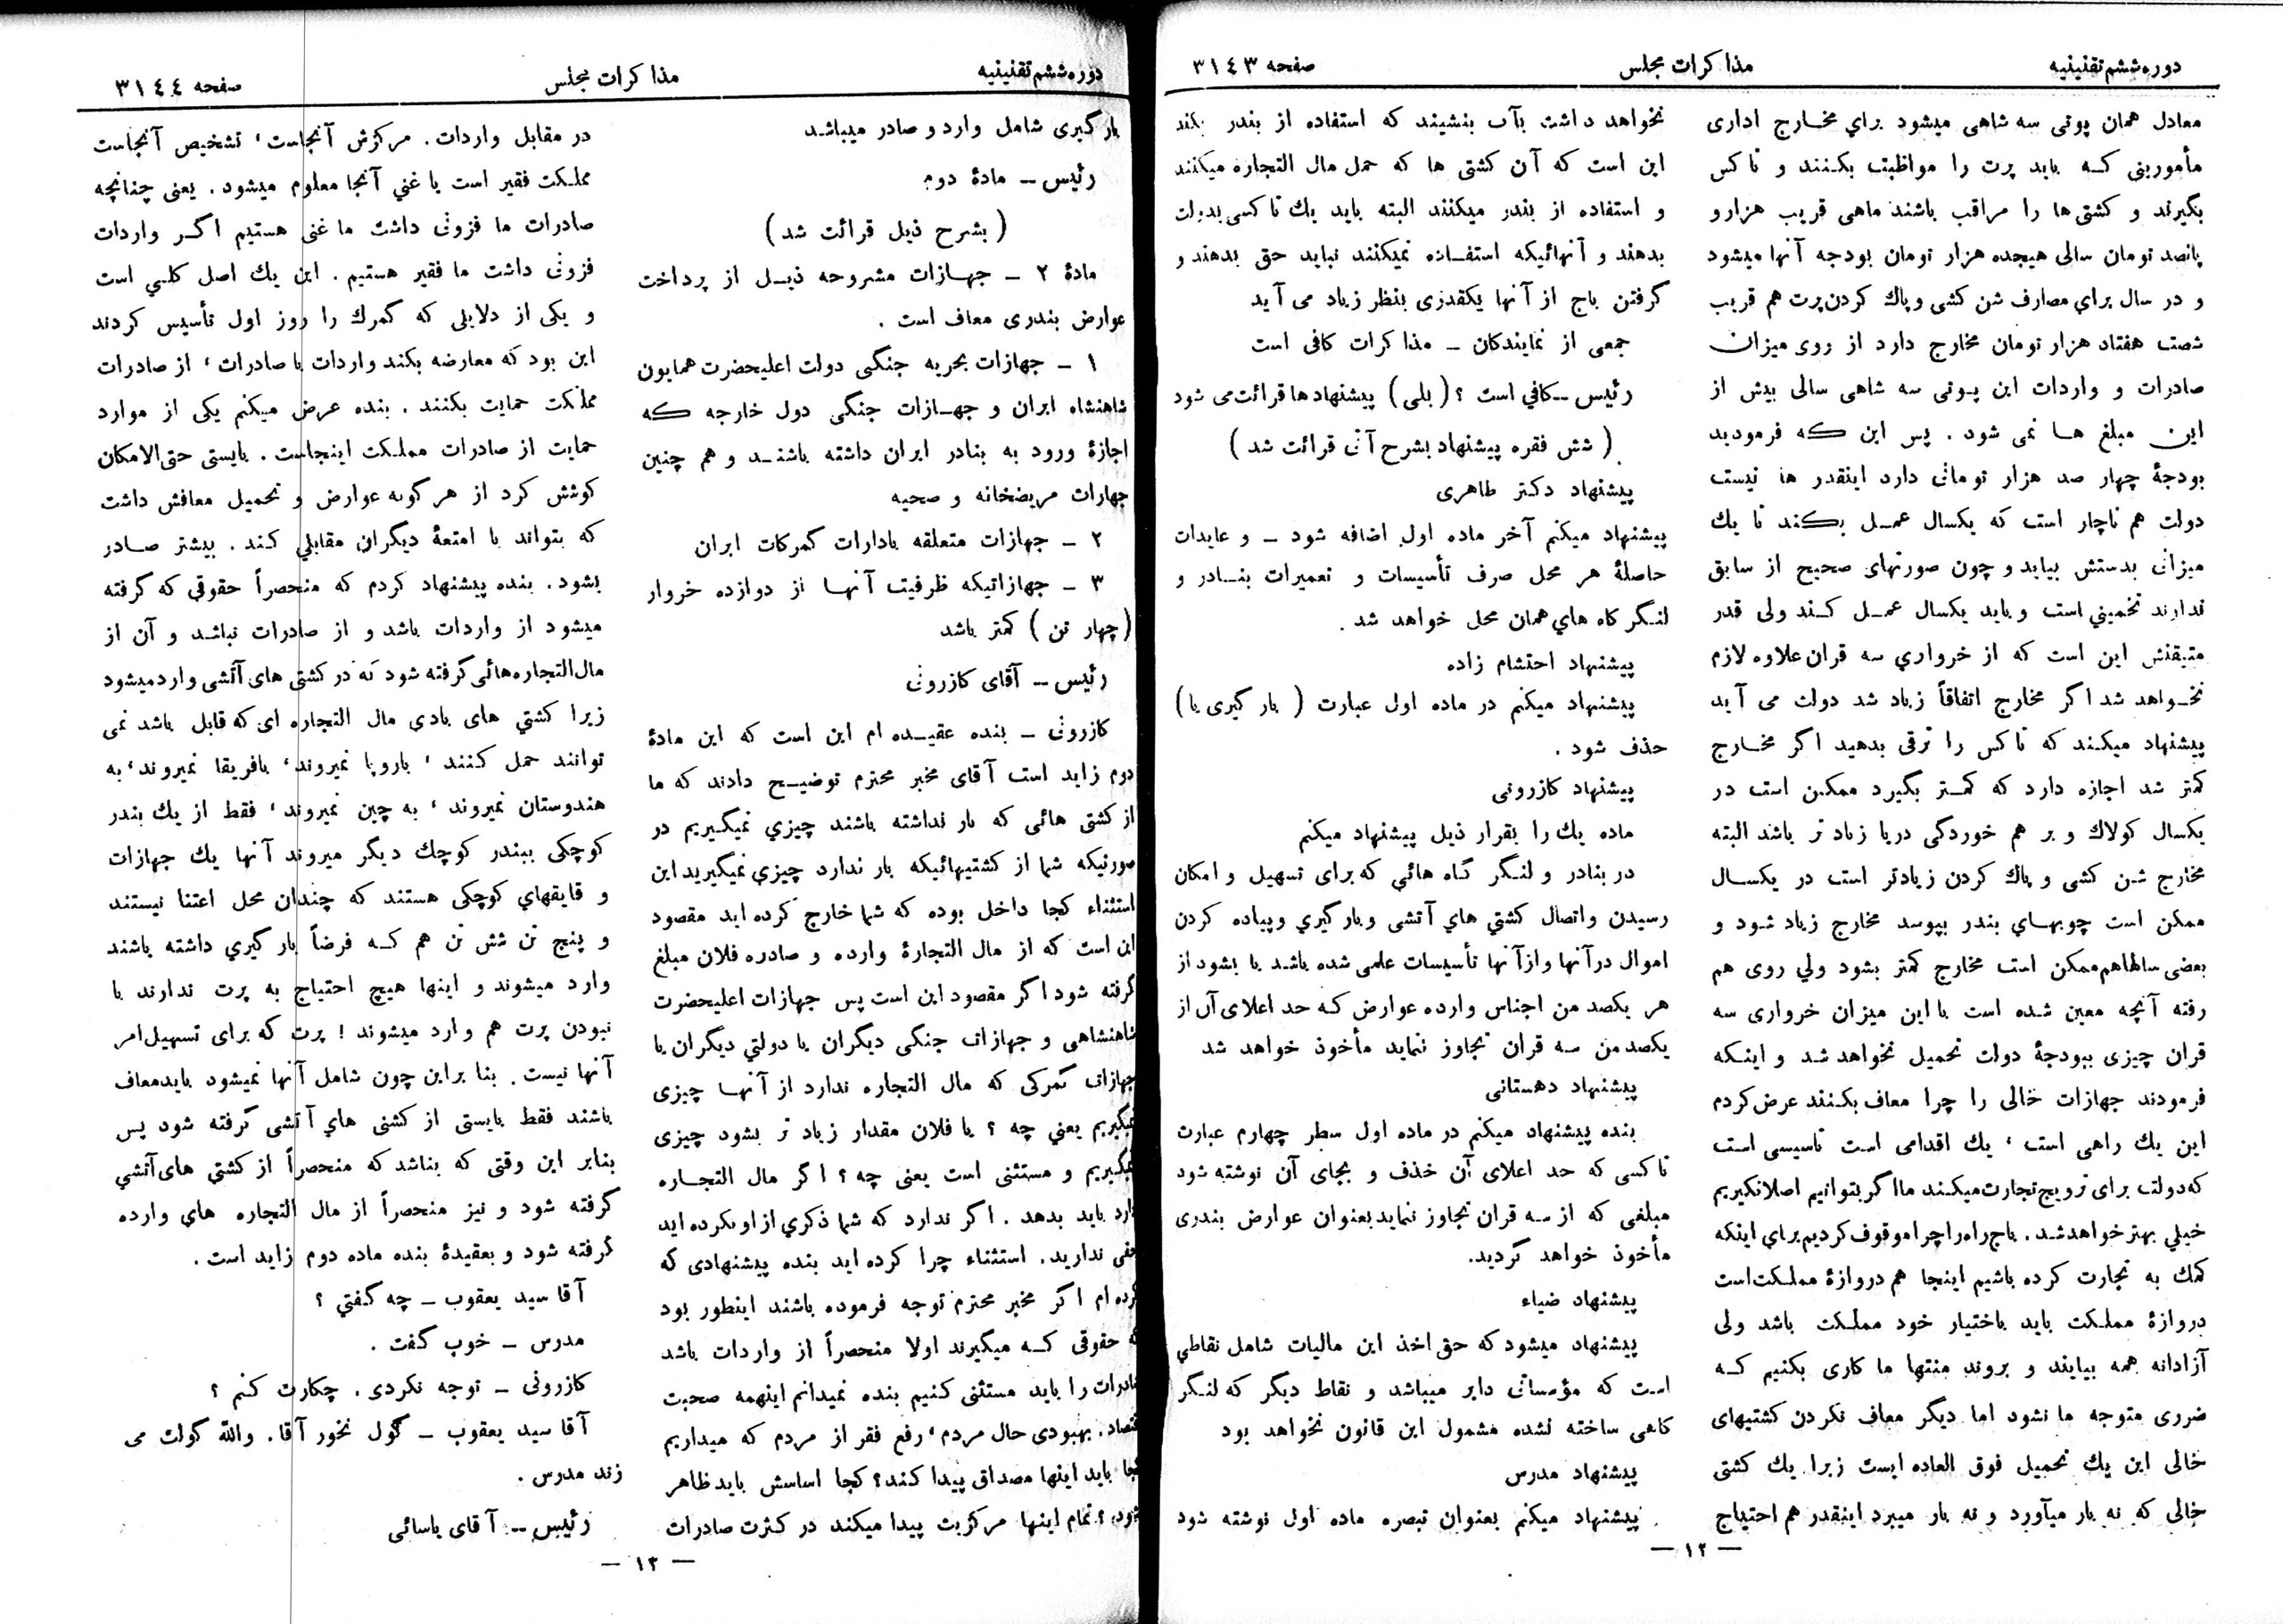 دوره ششم تقنینیه
مذاکرات مجلس
صفحه ۳۱٤۳
معادل همان پوتی سه شاهی میشود برای مخارج اداری
مأمورینی که باید پرت را مواظبت بکنند و تاکس
بگیرند و کشتی ها را مراقب باشند ماهی قریب هزار و
پانصد تومان سالی هیجده هزار تومان بودجه آنها میشود
و در سال برای مصارف شن کشی و پاك کردن پرت هم قریب
شصت هفتاد هزار تومان مخارج دارد از روی میزان
صادرات و واردات این پوتی سه شاهی سالی بیش از
این مبلغ ها نمی شود . پس این که فرمودید
بودجهٔ چهار صد هزار تومانی دارد اینقدر ها نیست
دولت هم ناچار است که یکسال عمل بکند تا یك
میزانی بدستش بیاید و چون صورتهای صحیح از سابق
ندارند تخمینی است و باید یکسال عمل کند ولی قدر
متیقنش این است که از خرواری سه قران علاوه لازم
نخواهد شد اگر مخارج اتفاقاً زیاد شد دولت می آید
پیشنهاد میکند که تاکس را ترقی بدهید اگر مخارج
کمتر شد اجازه دارد که کمتر بگیرد ممکن است در
یکسال کولاك و بر هم خوردگی دریا زیاد تر باشد البته
مخارج شن کشی و پاك کردن زیادتر است در یکسال
ممکن است چوبهای بندر بپوسد مخارج زیاد شود و
بعضی سالهاهم ممکن است مخارج کمتر بشود ولي روی هم
رفته آنچه معین شده است با این میزان خرواری سه
قران چیزی ببودجهٔ دولت تحمیل نخواهد شد و اینکه
فرمودند جهازات خالی را چرا معاف بکنند عرض کردم
این یك راهی است ، یك اقدامی است تاسیسی است
که دولت برای ترویج تجارت میکند ما اگر بتوانیم اصلا نگیریم
خیلي بهتر خواهد شد . باج راه را چرا موقوف کردیم برای اینکه
کمك به تجارت کرده باشیم اینجا هم دروازهٔ مملکت است
دروازهٔ مملکت باید باختیار خود مملکت باشد ولی
آزادانه همه بیایند و بروند منتها ما کاری بکنیم که
ضرری متوجه ما نشود اما دیگر معاف نکردن کشتیهای
خالی این یك تحمیل فوق العاده ایست زیرا یك کشتی
خالی که نه بار میآورد و نه بار میبرد اینقدر هم احتیاج
نخواهد داشت بآب بنشیند که استفاده از بندر بکند
این است که آن کشتی ها که حمل مال التجاره میکنند
و استفاده از بندر میکنند البته باید یك تاکسی بدولت
بدهند و آنهائیکه استفاده نمیکنند نباید حق بدهند و
گرفتن باج از آنها یکقدری بنظر زیاد می آید
جمعی از نمایندگان ــ مذاکرات کافی است
رئیس ــ کافي است ؟ (بلی) پیشنهاد ها قرائت می شود
( شش فقره پیشنهاد بشرح آتی قرائت شد )
پیشنهاد دکتر طاهری
پیشنهاد میکنم آخر ماده اول اضافه شود ــ و عایدات
حاصلهٔ هر محل صرف تأسیسات و تعمیرات بنادر و
لنگر گاه های همان محل خواهد شد .
پیشنهاد احتشام زاده
پیشنهاد میکنم در ماده اول عبارت ( بار گیری با )
حذف شود .
پیشنهاد کازرونی
ماده یك را بقرار ذیل پیشنهاد میکنم
در بنادر و لنگر گاه هائي که برای تسهیل و امکان
رسیدن و اتصال کشتي های آتشی و بارگیری و پیاده کردن
اموال در آنها و از آنها تأسیسات علمی شده باشد یا بشود از
هر یکصد من اجناس وارده عوارض که حد اعلای آن از
یکصد من سه قران تجاوز ننماید مأخوذ خواهد شد
پیشنهاد دهستانی
بنده پیشنهاد میکنم در ماده اول سطر چهارم عبارت
تاکسی که حد اعلای آن حذف و بجای آن نوشته شود
مبلغی که از سه قران تجاوز ننماید بعنوان عوارض بندری
مأخوذ خواهد گردید.
پیشنهاد ضیاء
پیشنهاد میشود که حق اخذ این مالیات شامل نقاطي
است که مؤسساتی دایر میباشد و نقاط دیگر که لنگر
گاهی ساخته نشده مشمول این قانون نخواهد بود
پیشنهاد مدرس
پیشنهاد میکنم بعنوان تبصره ماده اول نوشته شود
— ۱۲ —
دوره ششم تقنینیه
مذاکرات مجلس
صفحه ۳۱٤٤
بارگیری شامل وارد و صادر میباشد
رئیس ــ مادهٔ دوم
( بشرح ذیل قرائت شد )
مادهٔ ۲ ــ جهازات مشروحه ذیل از پرداخت
عوارض بندری معاف است .
۱ ــ جهازات بحریه جنگی دولت اعلیحضرت همایون
شاهنشاه ایران و جهازات جنگی دول خارجه که
اجازهٔ ورود به بنادر ایران داشته باشند و هم چنین
جهازات مریضخانه و صحیه
۲ ــ جهازات متعلقه بادارات گمرکات ایران
۳ ــ جهازاتیکه ظرفیت آنها از دوازده خروار
(چهار تن ) کمتر باشد
رئیس ــ آقای کازرونی
کازرونی ــ بنده عقیده ام این است که این مادهٔ
دوم زاید است آقای مخبر محترم توضیح دادند که ما
از کشتی هائی که بار نداشته باشند چیزي نمیگیریم در
صورتیکه شما از کشتیهائیکه بار ندارد چیزي نمیگیرید این
استثناء کجا داخل بوده که شما خارج کرده اید مقصود
این است که از مال التجارهٔ وارده و صادره فلان مبلغ
گرفته شود اگر مقصود این است پس جهازات اعلیحضرت
شاهنشاهی و جهازات جنگی دیگران یا دولتي دیگران یا
جهازات گمرکی که مال التجاره ندارد از آنها چیزی
نمیگیریم یعني چه ؟ یا فلان مقدار زیاد تر بشود چیزی
نمیگیریم و مستثنی است یعنی چه ؟ اگر مال التجاره
دارد باید بدهد . اگر ندارد که شما ذکري از او نکرده اید
حقی ندارید . استثناء چرا کرده اید بنده پیشنهادی که
کرده ام اگر مخبر محترم توجه فرموده باشند اینطور بود
که حقوقی که میگیرند اولا منحصراً از واردات باشد
صادرات را باید مستثنی کنیم بنده نمیدانم اینهمه صحبت
اقتصاد، بهبودی حال مردم ، رفع فقر از مردم که میداریم
کجا باید اینها مصداق پیدا کند ؟ کجا اساسش باید ظاهر
شود ؟ تمام اینها مرکزیت پیدا میکند در کثرت صادرات
در مقابل واردات . مرکزش آنجاست ، تشخیص آنجاست
مملکت فقیر است یا غني آنجا معلوم میشود . یعنی چنانچه
صادرات ما فزونی داشت ما غنی هستیم اگر واردات
فزونی داشت ما فقیر هستیم . این یك اصل کلي است
و یکی از دلایلی که گمرك را روز اول تأسیس کردند
این بود که معارضه بکند واردات با صادرات ، از صادرات
مملکت حمایت بکنند . بنده عرض میکنم یکی از موارد
حمایت از صادرات مملکت اینجاست . بایستی حتی الامکان
کوشش کرد از هر گونه عوارض و تحمیل معافش داشت
که بتواند با امتعهٔ دیگران مقابلي کند . بیشتر صادر
بشود . بنده پیشنهاد کردم که منحصراً حقوقي که گرفته
میشود از واردات باشد و از صادرات نباشد و آن از
مال التجاره هائی گرفته شود که در کشتی های آتشی وارد میشود
زیرا کشتي های بادی مال التجاره ای که قابل باشد نمی
توانند حمل کنند ، باروپا نمیروند ، بافریقا نمیروند ، به
هندوستان نمیروند ، به چین نمیروند ، فقط از یك بندر
کوچکی ببندر کوچك دیگر میروند آنها یك جهازات
و قایقهای کوچکی هستند که چندان محل اعتنا نیستند
و پنج تن شش تن هم که فرضاً بار گیري داشته باشند
وارد میشوند و اینها هیچ احتیاج به پرت ندارند با
نبودن پرت هم وارد میشوند ! پرت که برای تسهیل امر
آنها نیست . بنا براین چون شامل آنها نمیشود باید معاف
باشند فقط بایستی از کشتی های آتشی گرفته شود پس
بنابر این وقتی که بناشد که منحصراً از کشتي های آتشي
گرفته شود و نیز منحصراً از مال التجاره های وارده
گرفته شود و بعقیدهٔ بنده ماده دوم زاید است .
آقا سید یعقوب ــ چه گفتي ؟
مدرس ــ خوب گفت .
کازرونی ــ توجه نکردی . چکارت کنم ؟
آقا سید یعقوب ــ گول نخور آقا . والله گولت می
زند مدرس .
رئیس ــ آقای یاسائی
— ۱۳ —